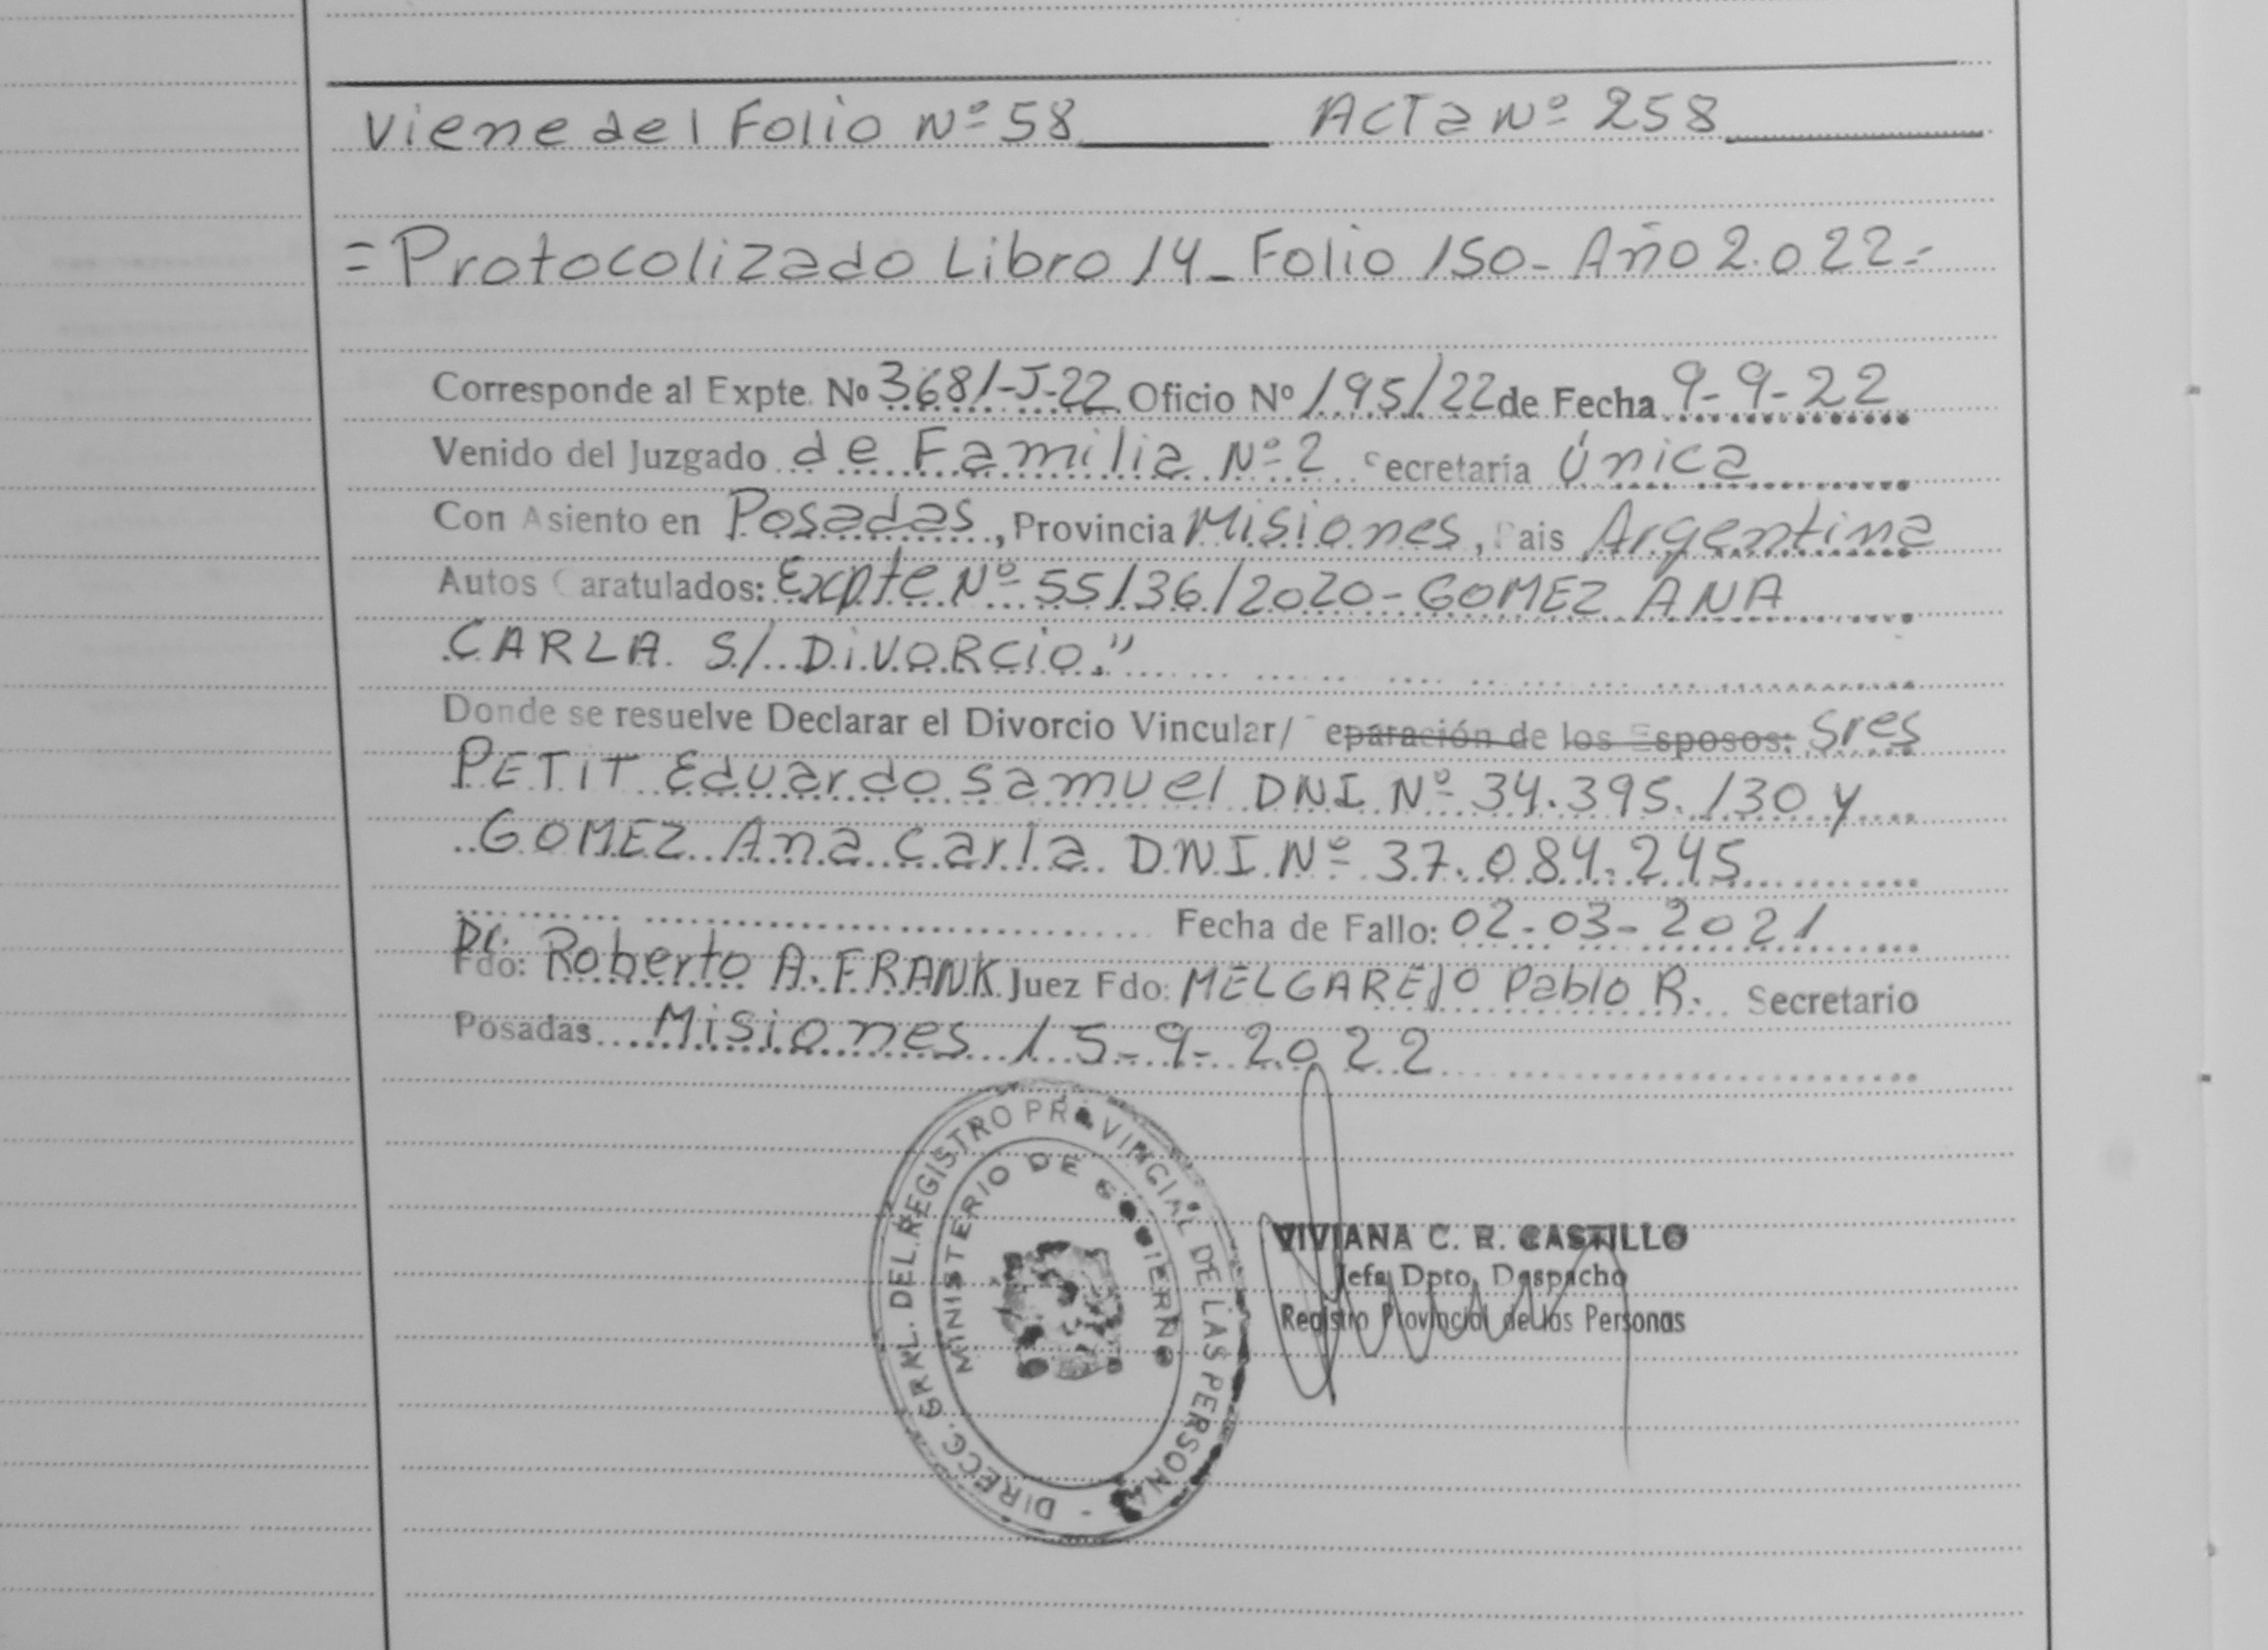 Viene del Folio Nº 58 Acta Nº 258
= Protocolizado Libro 14 - Folio 150 - Año 2.022 =
Corresponde al Expte. Nº 3681-J-22 Oficio Nº 195/22 de Fecha 9-9-22
Venido del Juzgado de Familia Nº 2 Secretaría Única
Con Asiento en Posadas, Provincia Misiones, Pais Argentina
Autos Caratulados: Expte Nº 55136/2020 - GOMEZ ANA
CARLA S/ DiVORCio."
Donde se resuelve Declarar el Divorcio Vincular/ Separación de los Esposos: Sres
PETiT Eduardo Samuel DNI Nº 34.395.130 y
GOMEZ Ana Carla D.N.I. Nº 37.084.245
Fecha de Fallo: 02-03-2021
Dr.
Fdo: Roberto A. FRANK Juez Fdo: MELGAREJO Pablo R. Secretario
Posadas Misiones 15-9-2022
DIRECC. GRAL. DEL REGISTRO PROVINCIAL DE LAS PERSONAS -
MINISTERIO DE GOBIERNO
VIVIANA C. R. CASTILLO
Jefa Dpto. Despacho
Registro Provincial de las Personas